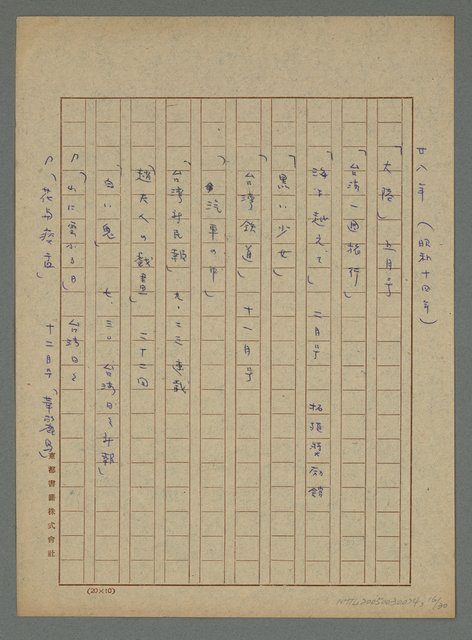 廿八年（昭和十四年）
「大陸」五月号
「台湾一週旅行」
「海を越えて」二月号 拓殖獎励館
「黒い少女」
「台湾鉄道」十一月号
「汽車の中」
「台湾新民報」九、二三連載
趙夫人の戯画」二十二回
「白い鬼」七、三〇 台湾日日新報」
「山に雲ふる日」台湾日日
「花与痰盂」十二月号「華麗島」
東都書籍株式會社
(20×10)
NMTL20050030024
16/30